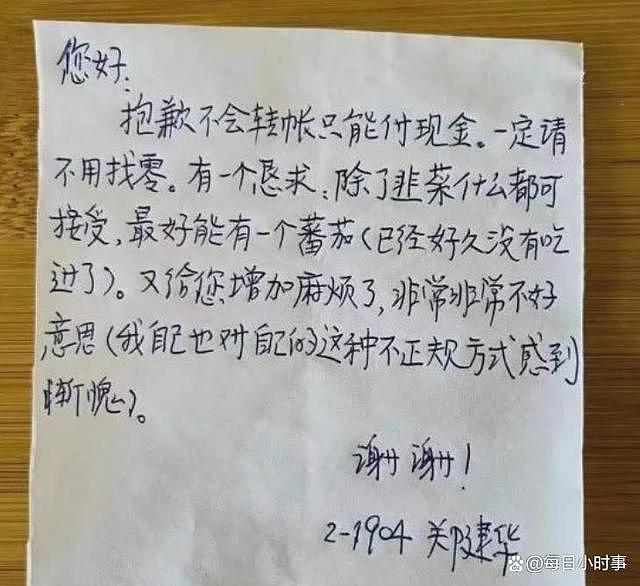 您好:
抱歉不会转帐只能付现金。一定请
不用找零。有一个恳求:除了韭菜什么都可
接受,最好能有一个蕃茄(已经好久没有吃
过了)。又给您增加麻烦了,非常非常不好
意思(我自己也对自己的这种不正规方式感到
惭愧)。
谢谢!
2-1904 郑建华
@每日小时事